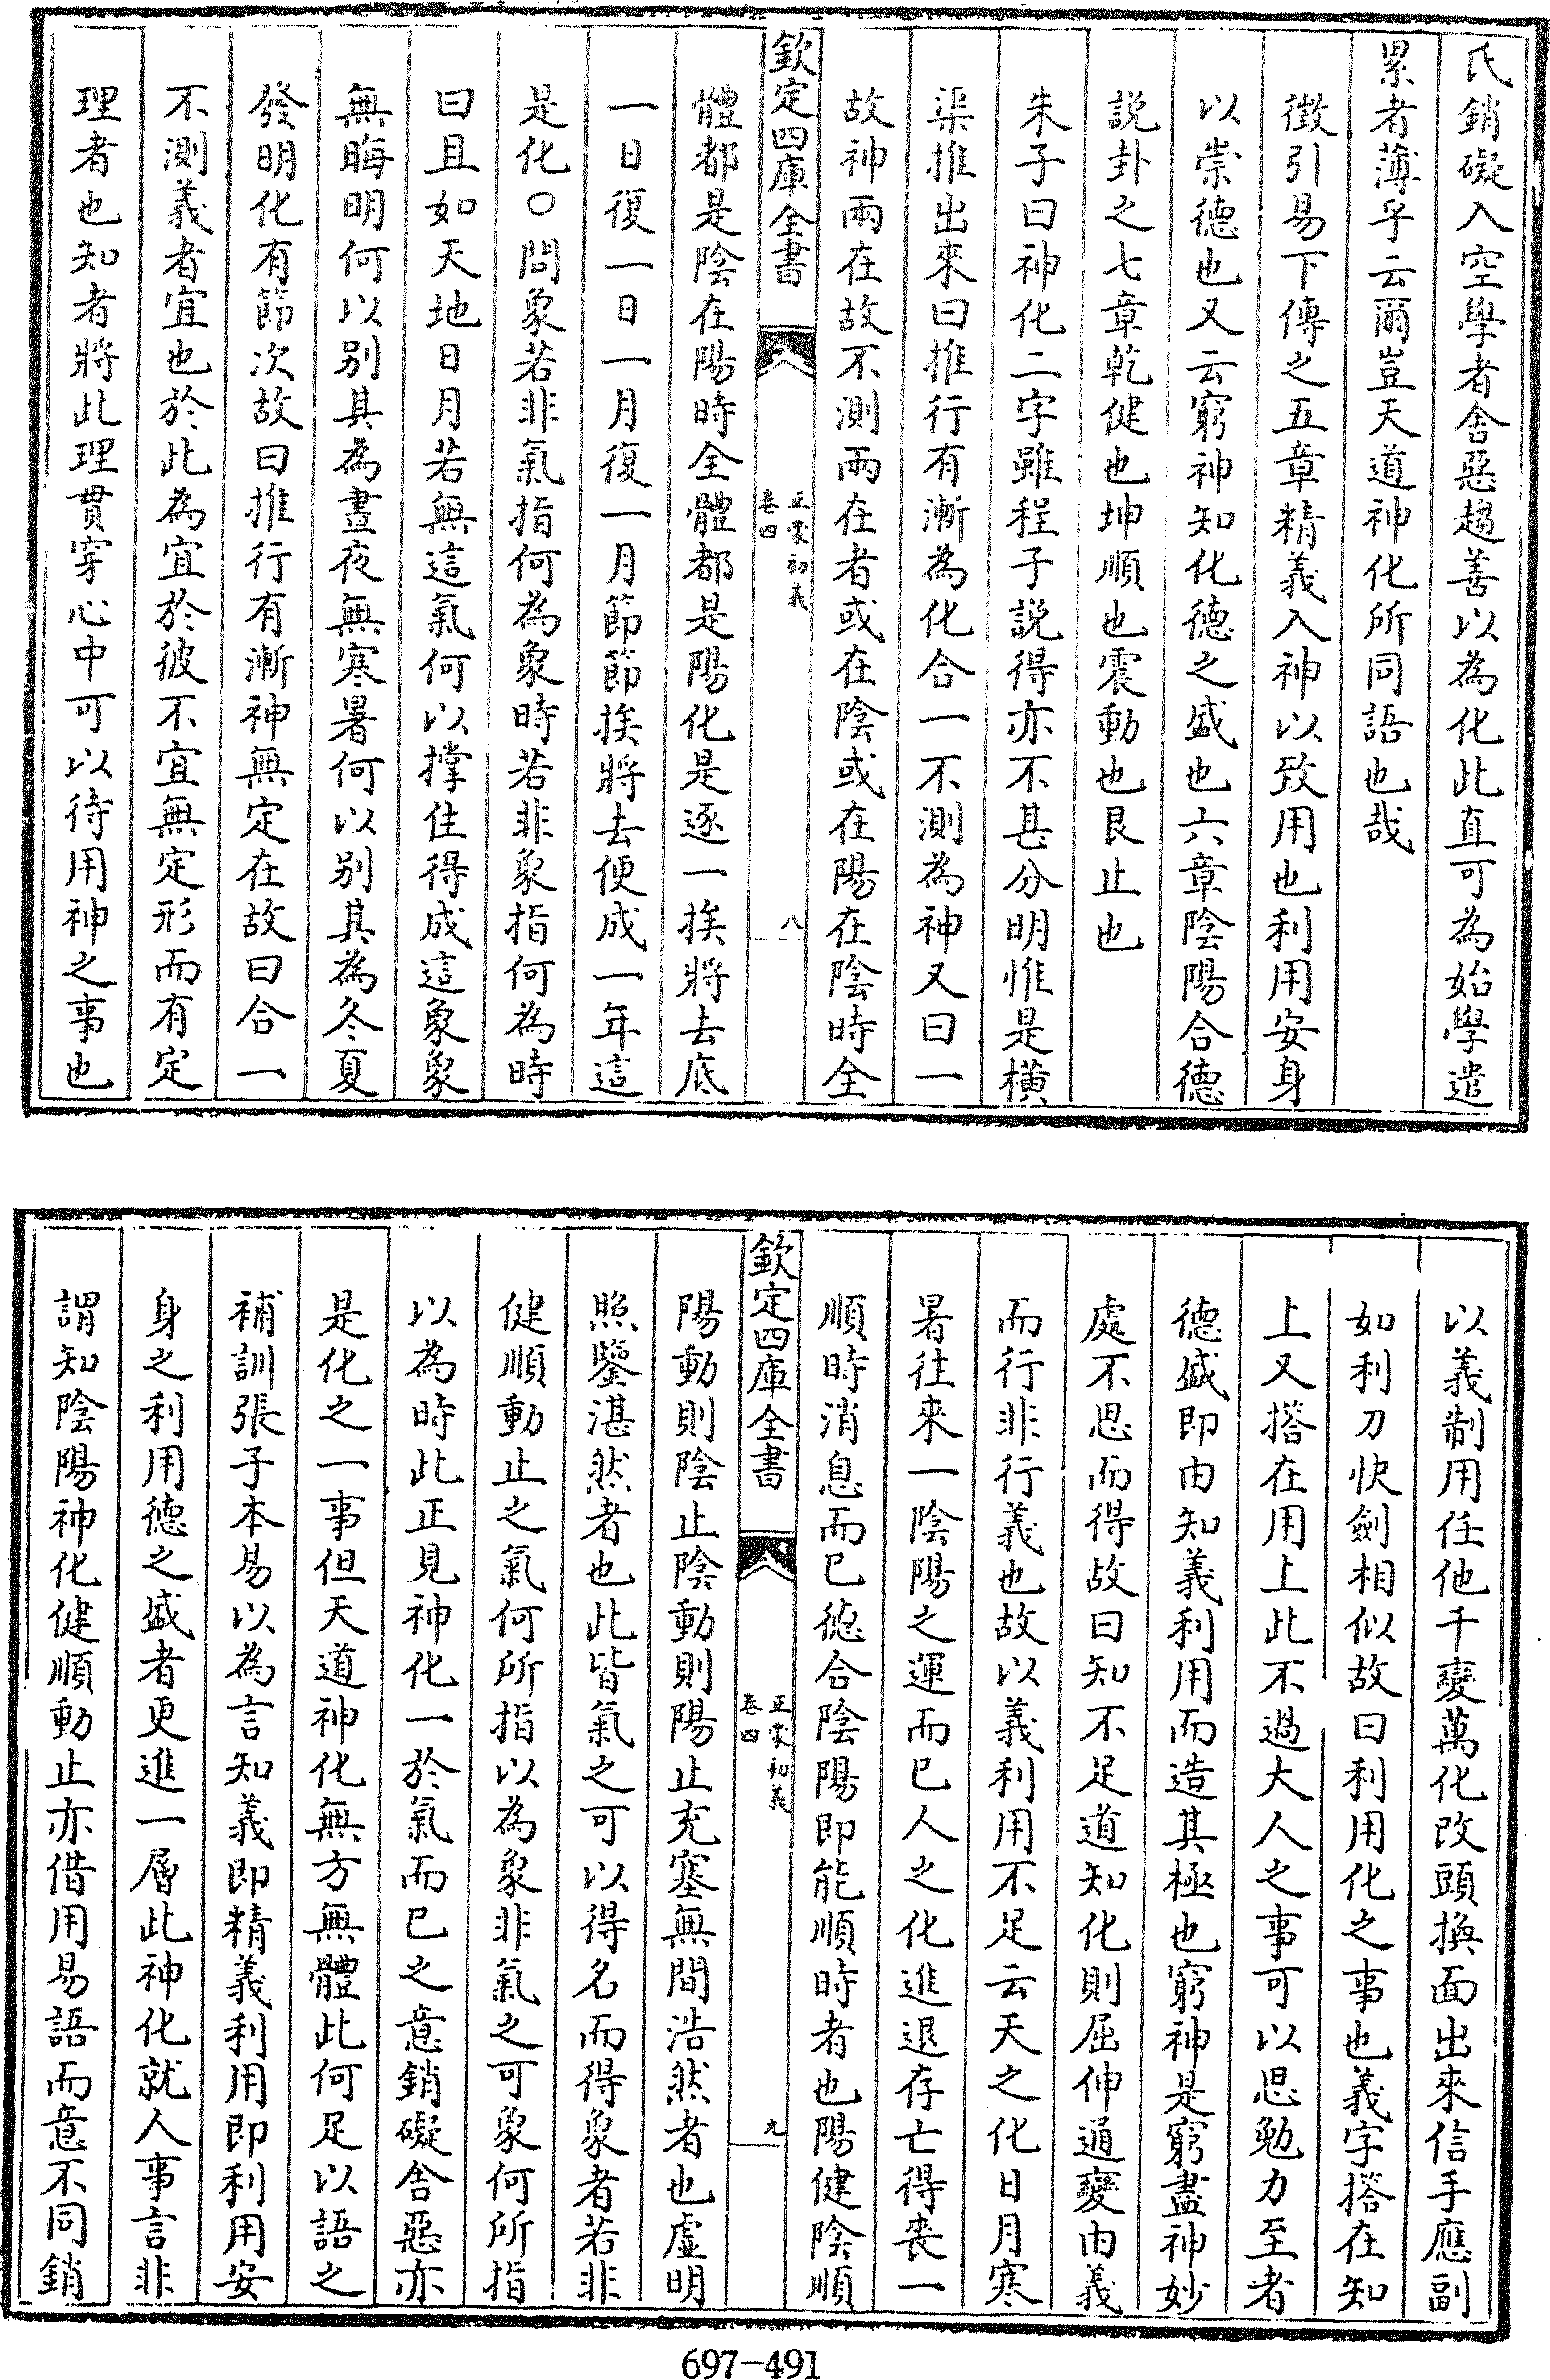 氏銷礙入空學者舍惡趨善以為化此直可為始學遣
累者薄乎云爾豈天道神化所同語也哉
徵引易下傳之五章精義入神以致用也利用安身
以崇德也又云窮神知化德之盛也六章陰陽合德
説卦之七章乾健也坤順也震動也艮止也
朱子曰神化二字雖程子説得亦不甚分明惟是橫
渠推出來曰推行有漸為化合一不測為神又曰一
故神兩在故不測兩在者或在陰或在陽在陰時全
欽定四庫全書
正蒙初義
卷四
八
體都是陰在陽時全體都是陽化是逐一挨將去底
一日復一日一月復一月節節挨將去便成一年這
是化○問象若非氣指何為象時若非象指何為時
曰且如天地日月若無這氣何以撑住得成這象象
無晦明何以别其為晝夜無寒暑何以别其為冬夏
發明化有節次故曰推行有漸神無定在故曰合一
不測義者宜也於此為宜於彼不宜無定形而有定
理者也知者將此理貫穿心中可以待用神之事也
以義制用任他千變萬化改頭換面出來信手應副
如利刀快劍相似故曰利用化之事也義字搭在知
上又搭在用上此不過大人之事可以思勉力至者
德盛即由知義利用而造其極也窮神是窮盡神妙
處不思而得故曰知不足道知化則屈伸通變由義
而行非行義也故以義利用不足云天之化日月寒
暑往來一陰陽之運而已人之化進退存亡得喪一
順時消息而已德合陰陽即能順時者也陽健陰順
欽定四庫全書
正蒙初義
卷四
九
陽動則陰止陰動則陽止充塞無間浩然者也虛明
照鑒湛然者也此皆氣之可以得名而得象者若非
健順動止之氣何所指以為象非氣之可象何所指
以為時此正見神化一於氣而已之意銷礙舍惡亦
是化之一事但天道神化無方無體此何足以語之
補訓張子本易以為言知義即精義利用即利用安
身之利用德之盛者更進一層此神化就人事言非
謂知陰陽神化健順動止亦借用易語而意不同銷
697-491